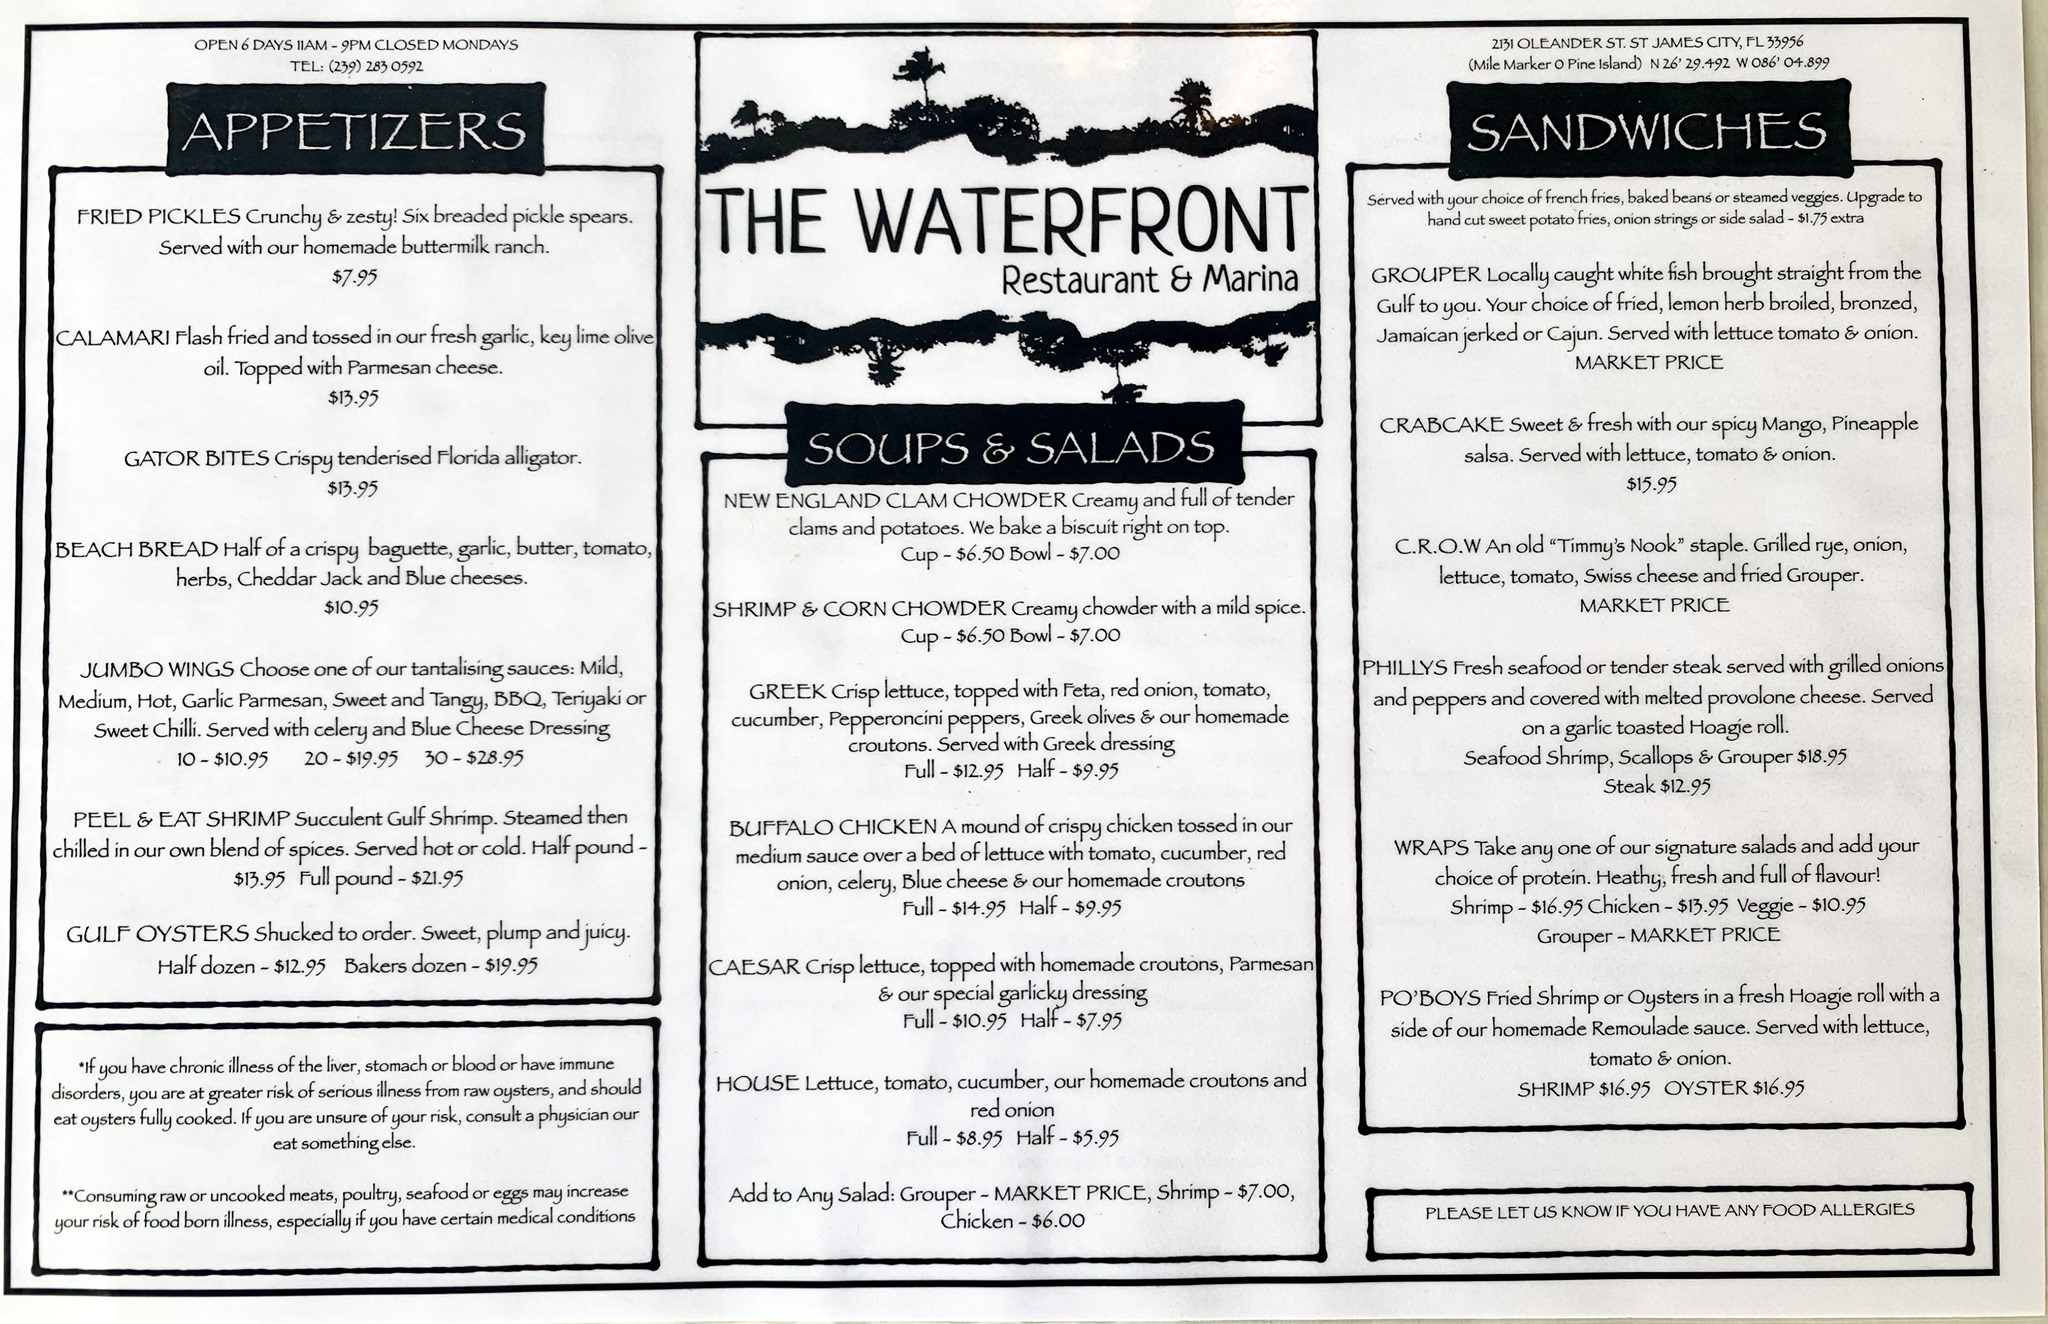 OPEN 6 DAYS 11AM - 9PM CLOSED MONDAYS
TEL: (239) 283 0592
APPETIZERS
FRIED PICKLES Crunchy & zesty! Six breaded pickle spears.
Served with our homemade buttermilk ranch.
$7.95
CALAMARI Flash fried and tossed in our fresh garlic, key lime olive
oil. Topped with Parmesan cheese.
$13.95
GATOR BITES Crispy tenderised Florida alligator.
$13.95
BEACH BREAD Half of a crispy baguette, garlic, butter, tomato,
herbs, Cheddar Jack and Blue cheeses.
$10.95
JUMBO WINGS Choose one of our tantalising sauces: Mild,
Medium, Hot, Garlic Parmesan, Sweet and Tangy, BBQ, Teriyaki or
Sweet Chilli. Served with celery and Blue Cheese Dressing
10 - $10.95 20 - $19.95 30 - $28.95
PEEL & EAT SHRIMP Succulent Gulf Shrimp. Steamed then
chilled in our own blend of spices. Served hot or cold. Half pound -
$13.95 Full pound - $21.95
GULF OYSTERS Shucked to order. Sweet, plump and juicy.
Half dozen - $12.95 Bakers dozen - $19.95
*If you have chronic illness of the liver, stomach or blood or have immune
disorders, you are at greater risk of serious illness from raw oysters, and should
eat oysters fully cooked. If you are unsure of your risk, consult a physician our
eat something else.
**Consuming raw or uncooked meats, poultry, seafood or eggs may increase
your risk of food born illness, especially if you have certain medical conditions
THE WATERFRONT
Restaurant & Marina
SOUPS & SALADS
NEW ENGLAND CLAM CHOWDER Creamy and full of tender
clams and potatoes. We bake a biscuit right on top.
Cup - $6.50 Bowl - $7.00
SHRIMP & CORN CHOWDER Creamy chowder with a mild spice.
Cup - $6.50 Bowl - $7.00
GREEK Crisp lettuce, topped with Feta, red onion, tomato,
cucumber, Pepperoncini peppers, Greek olives & our homemade
croutons. Served with Greek dressing
Full - $12.95 Half - $9.95
BUFFALO CHICKEN A mound of crispy chicken tossed in our
medium sauce over a bed of lettuce with tomato, cucumber, red
onion, celery, Blue cheese & our homemade croutons
Full - $14.95 Half - $9.95
CAESAR Crisp lettuce, topped with homemade croutons, Parmesan
& our special garlicky dressing
Full - $10.95 Half - $7.95
HOUSE Lettuce, tomato, cucumber, our homemade croutons and
red onion
Full - $8.95 Half - $5.95
Add to Any Salad: Grouper - MARKET PRICE, Shrimp - $7.00,
Chicken - $6.00
2131 OLEANDER ST. ST JAMES CITY, FL 33956
(Mile Marker 0 Pine Island) N 26' 29.492 W 086' 04.899
SANDWICHES
Served with your choice of french fries, baked beans or steamed veggies. Upgrade to
hand cut sweet potato fries, onion strings or side salad - $1.75 extra
GROUPER Locally caught white fish brought straight from the
Gulf to you. Your choice of fried, lemon herb broiled, bronzed,
Jamaican jerked or Cajun. Served with lettuce tomato & onion.
MARKET PRICE
CRABCAKE Sweet & fresh with our spicy Mango, Pineapple
salsa. Served with lettuce, tomato & onion.
$15.95
C.R.O.W An old "Timmy's Nook" staple. Grilled rye, onion,
lettuce, tomato, Swiss cheese and fried Grouper.
MARKET PRICE
PHILLYS Fresh seafood or tender steak served with grilled onions
and peppers and covered with melted provolone cheese. Served
on a garlic toasted Hoagie roll.
Seafood Shrimp, Scallops & Grouper $18.95
Steak $12.95
WRAPS Take any one of our signature salads and add your
choice of protein. Heathy, fresh and full of flavour!
Shrimp - $16.95 Chicken - $13.95 Veggie - $10.95
Grouper - MARKET PRICE
PO'BOYS Fried Shrimp or Oysters in a fresh Hoagie roll with a
side of our homemade Remoulade sauce. Served with lettuce,
tomato & onion.
SHRIMP $16.95 OYSTER $16.95
PLEASE LET US KNOW IF YOU HAVE ANY FOOD ALLERGIES